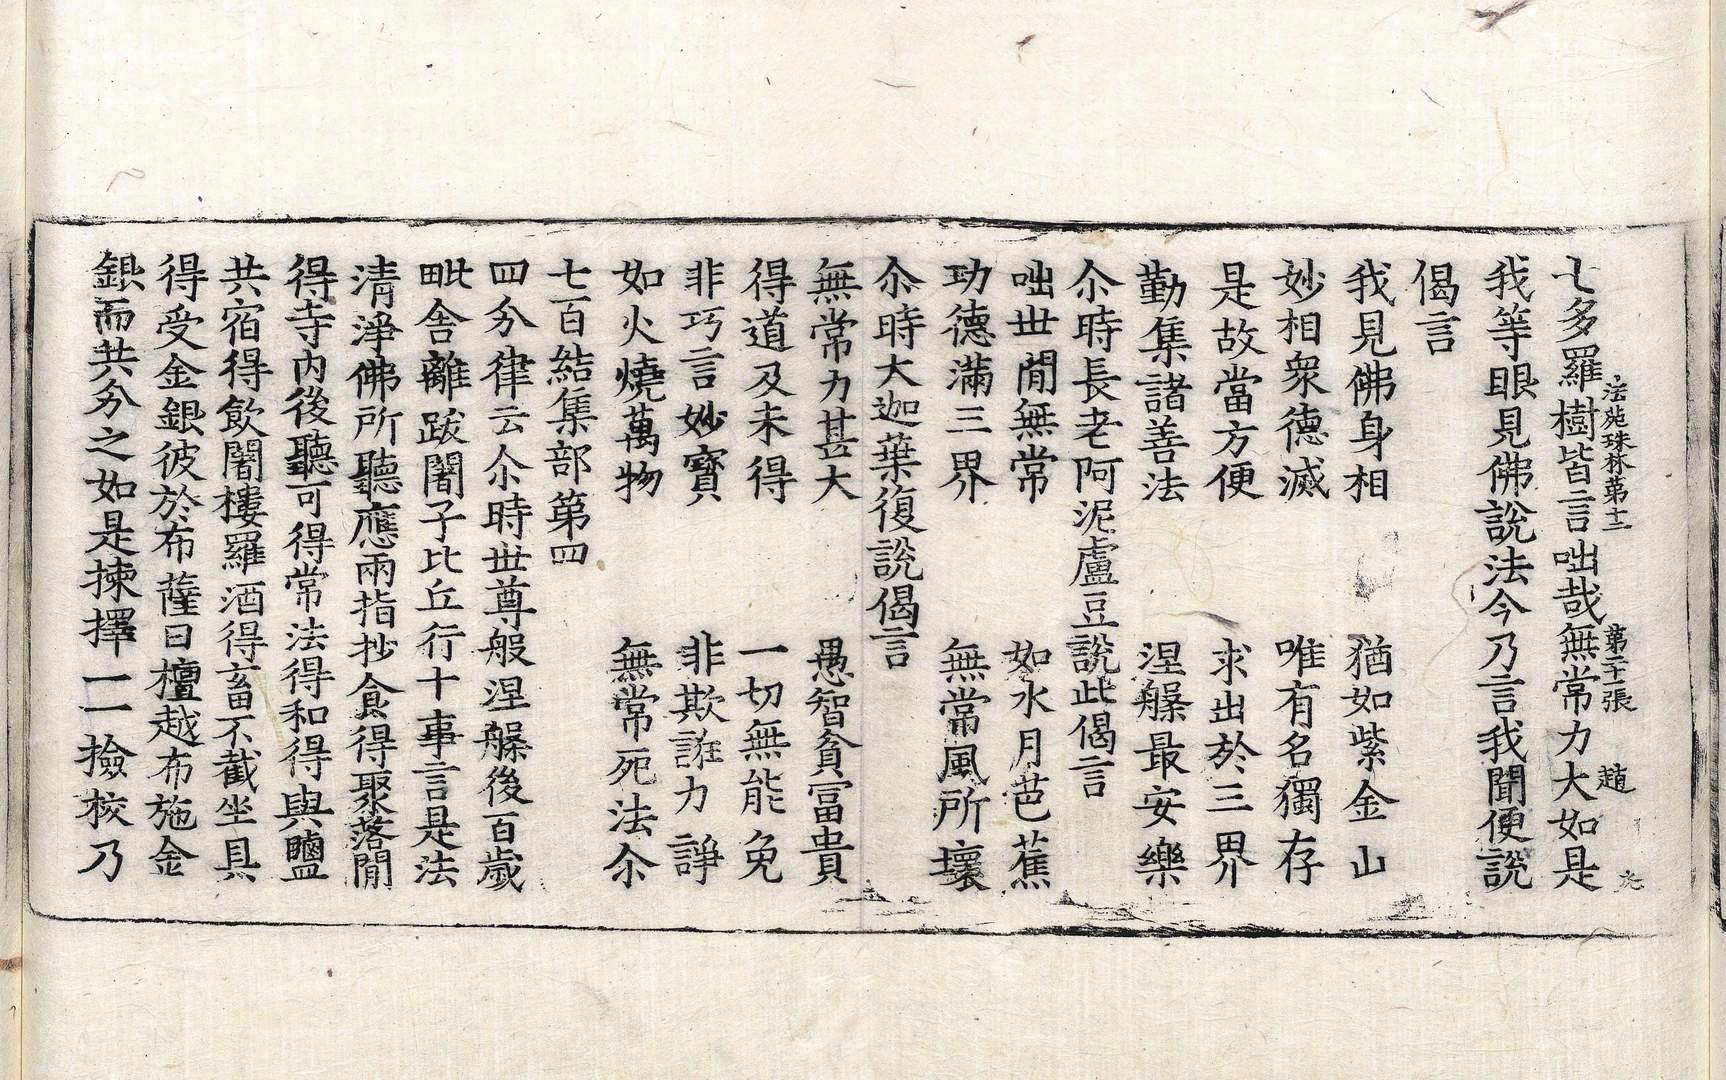 七多羅樹皆言咄哉無常力大如是
法苑珠林第十二 第二十一張 趙
我等眼見佛說法今乃言我聞便說
偈言
我見佛身相 猶如紫金山
妙相衆德滅 唯有名獨存
是故當方便 求出於三界
勤集諸善法 涅槃最安樂
尒時長老阿泥盧豆說此偈言
咄世閒無常 如水月芭蕉
功德滿三界 無常風所壞
尒時大迦葉復說偈言
無常力甚大 愚智貧富貴
得道及未得 一切無能免
非巧言妙寶 非欺誑力諍
如火燒萬物 無常死法尒
七百結集部第四
四分律云尒時世尊般涅槃後百歲
毗舍離跋闍子比丘行十事言是法
清淨佛所聽應兩指抄食得聚落閒
得寺內後聽可得常法得和得與鹽
共宿得飲闍樓羅酒得畜不截坐具
得受金銀彼於布薩日檀越布施金
銀而共分之如是揀擇一一撿校乃